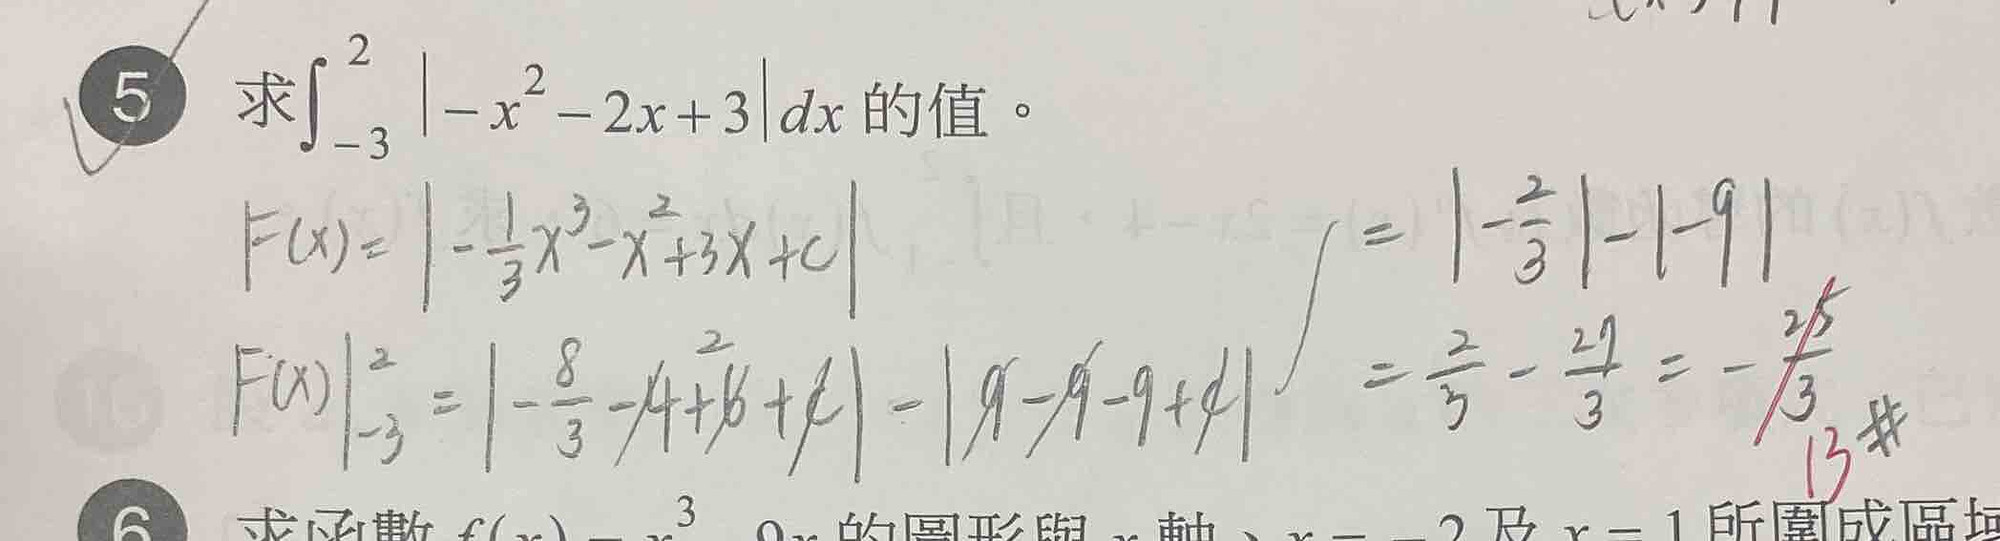 5 求∫_{-3}^{2} |-x²-2x+3|dx 的值。
F(x)=|-1/3x³-x²+3x+c|
F(x)|_{-3}^{2} = |-8/3-4+6+c| - |9-9-9+c|
2
= |-2/3|-|-9|
= 2/3 - 27/3 = - 25/3 #
13
6 求函數 f(x)=x³-9x 的圖形與 x 軸、x=-2 及 x=1 所圍成區域